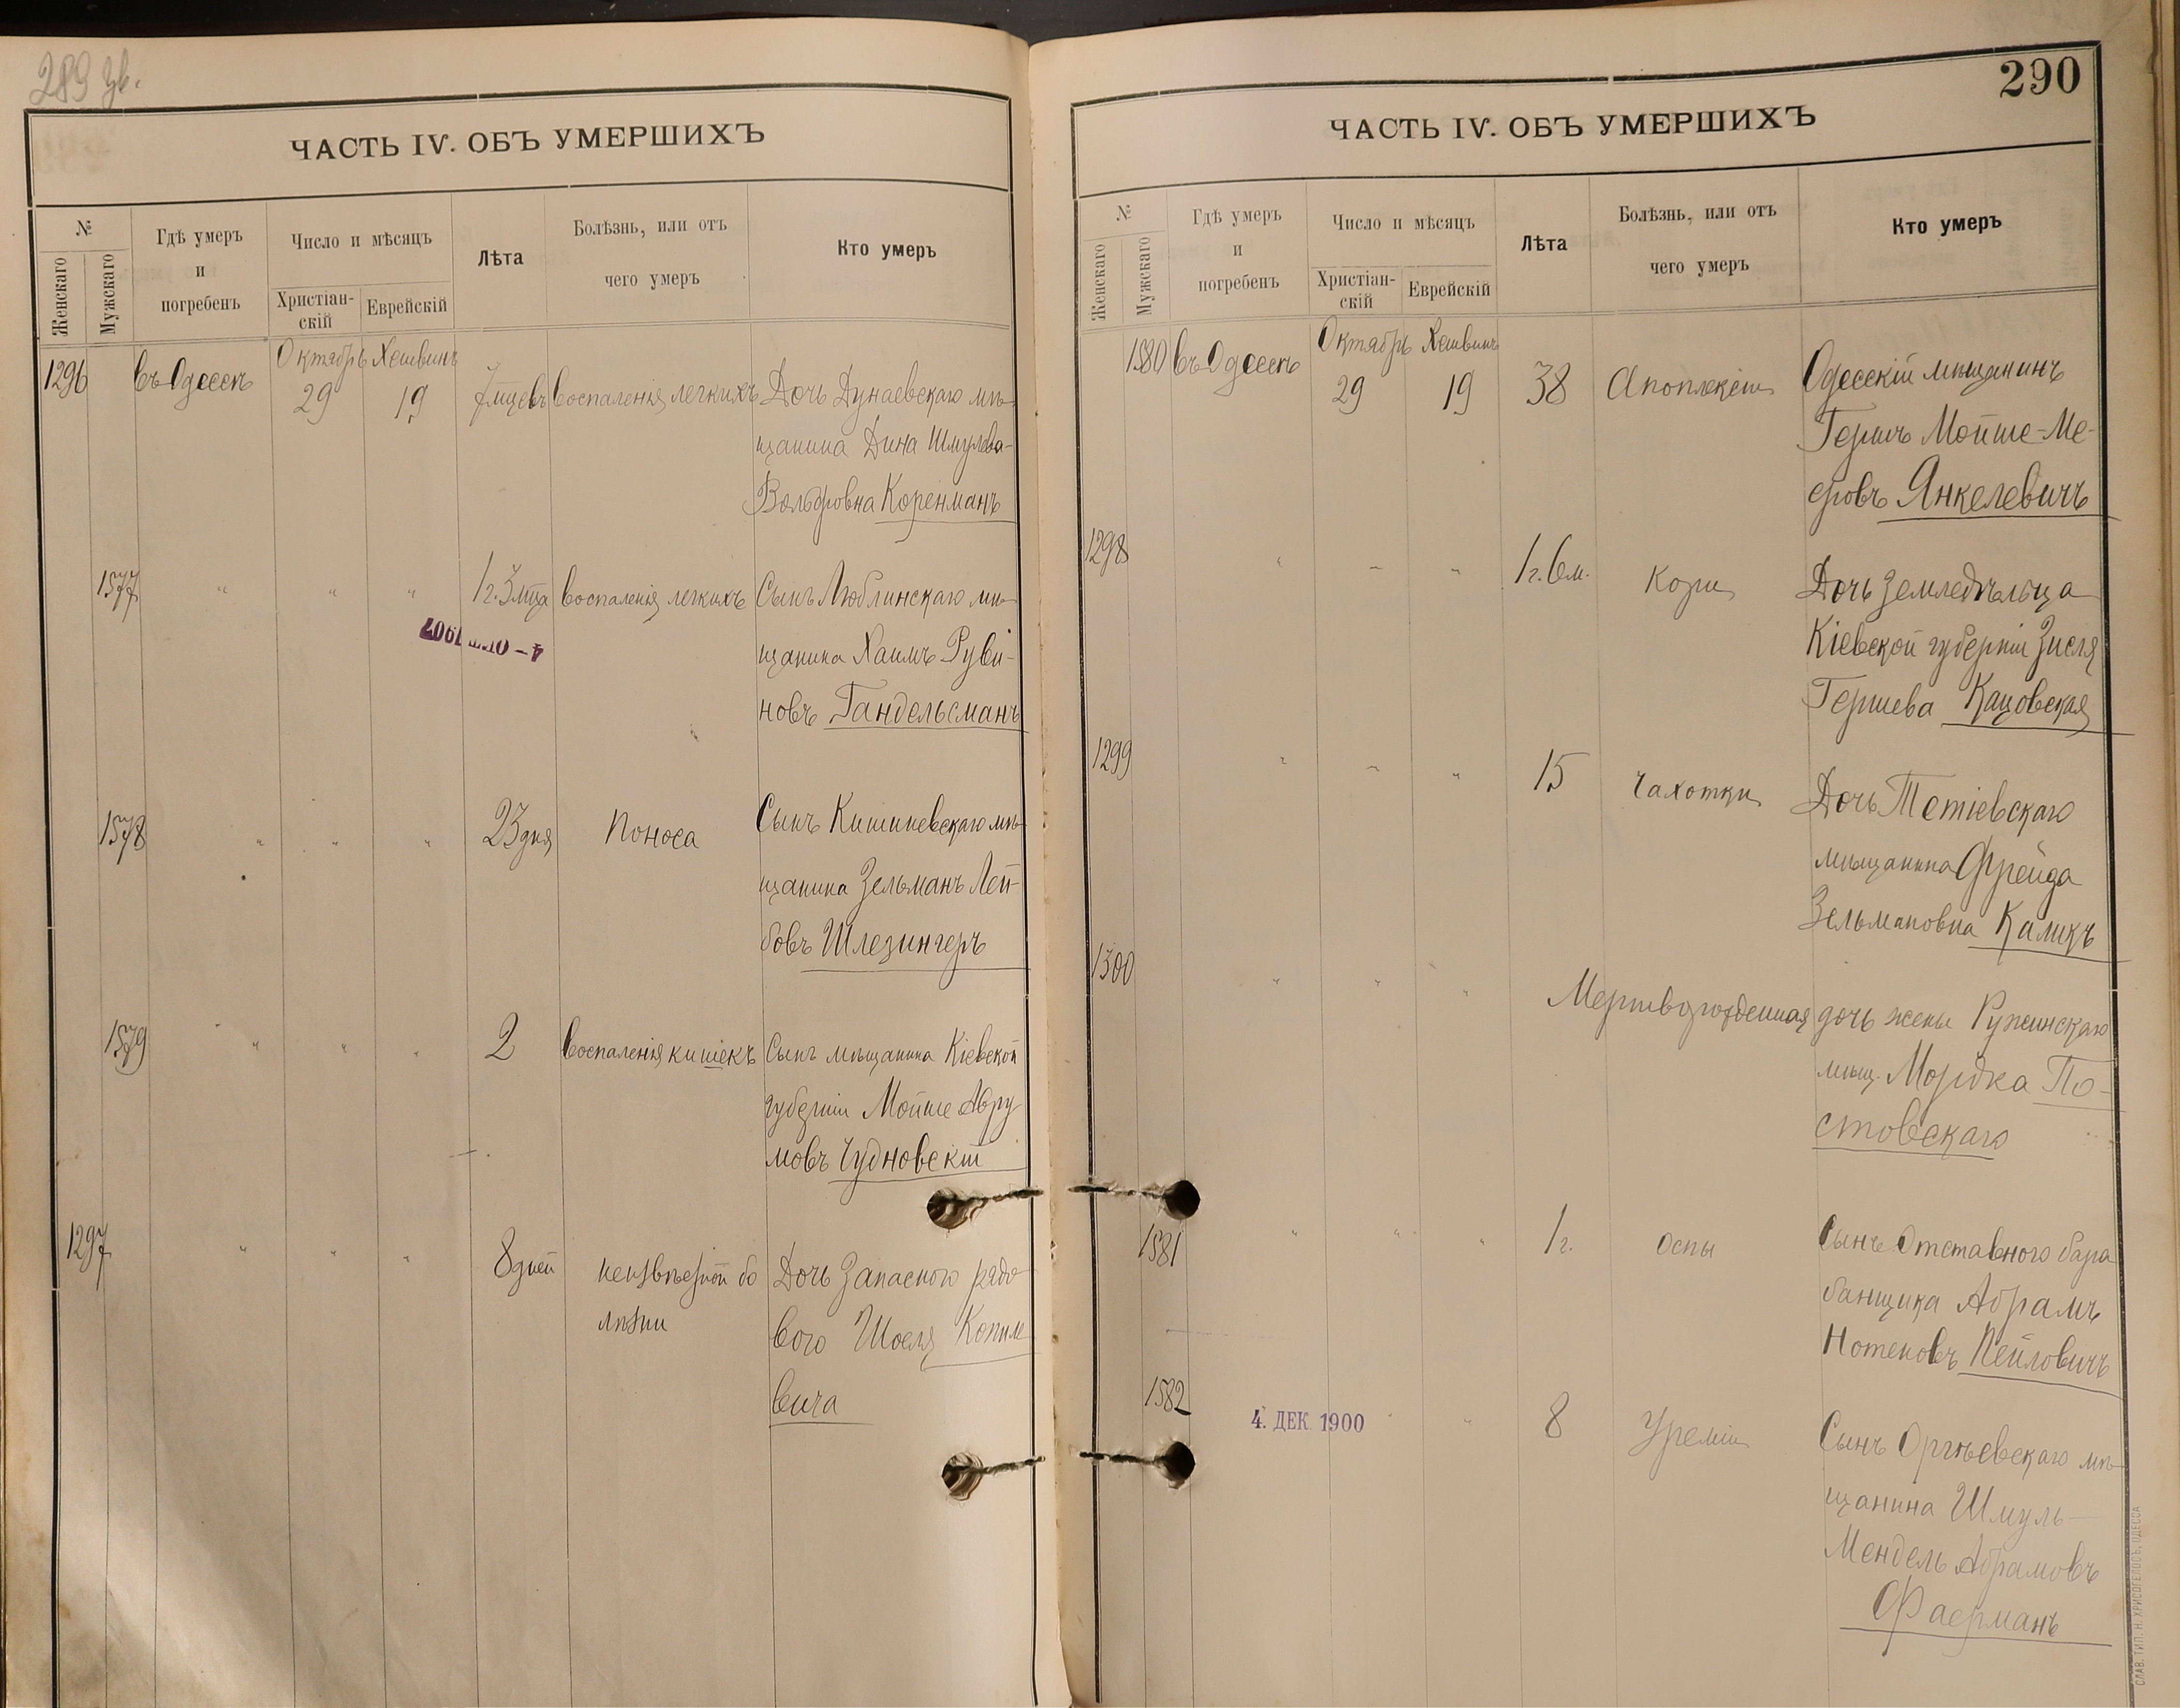 289 зв.
ЧАСТЬ IV. ОБЪ УМЕРШИХЪ
№
Женскаго
Мужскаго
Гдѣ умеръ
и
погребенъ
Число и мѣсяцъ
Христіан-
скій
Еврейскій
Лѣта
Болѣзнь, или отъ
чего умеръ
Кто умеръ
Октябрь Хешвинъ
1296 въ Одессѣ 29 19 7 мцевъ воспаленія легкихъ Дочь Дунаевскаго мѣ-
щанина Дина Шмулева-
Вольфовна Коренманъ
1577 " " " 1 г. 3 мца воспаленія легкихъ Сынъ Люблинскаго мѣ-
щанина Хаимъ Руви-
новъ Гандельсманъ
1578 " " " 23 дня Поноса Сынъ Кишиневскаго мѣ-
щанина Зельманъ Лей-
бовъ Шлезингеръ
1579 " " " 2 воспаленія кишекъ Сынъ мѣщанина Кіевской
губерніи Мойше Авру
мовъ Чудновскій
1297 " " " 8 дней неизвѣстной бо Дочь Запасного рядо
лѣзни вого Шоеля Копиле
вича
290
ЧАСТЬ IV. ОБЪ УМЕРШИХЪ
№
Женскаго
Мужскаго
Гдѣ умеръ
и
погребенъ
Число и мѣсяцъ
Христіан-
скій
Еврейскій
Лѣта
Болѣзнь, или отъ
чего умеръ
Кто умеръ
Октябрь Хешвинъ
1580 въ Одессѣ 29 19 38 Апоплексіи Одесскій мѣщанинъ
Гершъ Мойше-Ме-
еровъ Янкелевичъ
1298 " " " 1 г. 6 м. Кори Дочь Земледѣльца
Кіевской губерніи Зисля
Гершева Кацовская
1299 " " " 15 Чахотки Дочь Тетіевскаго
мѣщанина Фрейда
Зельмановна Каликъ
1300 " " " Мертворожденная дочь жены Ружинскаго
мѣщ. Мордка По-
стовскаго
1581 " " " 1 г. Оспы Сынъ Отставного бара
банщика Абрамъ
Нотеновъ Пейловичъ
1582 4. ДЕК 1900 " " 8 Уреміи Сынъ Оргѣевскаго мѣ-
щанина Шмуль-
Мендель Абрамовъ
Фаерманъ
СЛАВ. ТИП. Н. ХРИСОГЕЛОСЪ, ОДЕССА